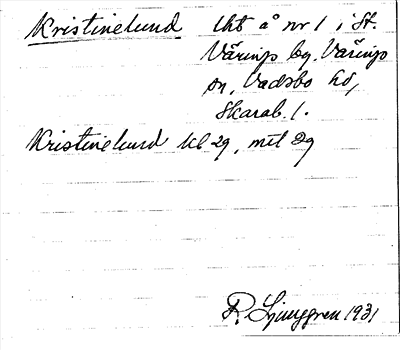 Kristinelund lht å nr 1 i St.
Väring by, Värings
sn, Vadsbo hd,
Skarab. l.
Kristinelund kl 29, mtl 29
R. Ljunggren 1931